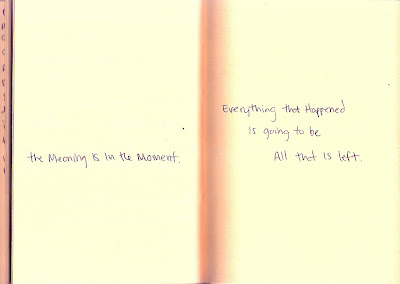 the Meaning is in the Moment.
Everything that Happened
is going to be
All that is left.